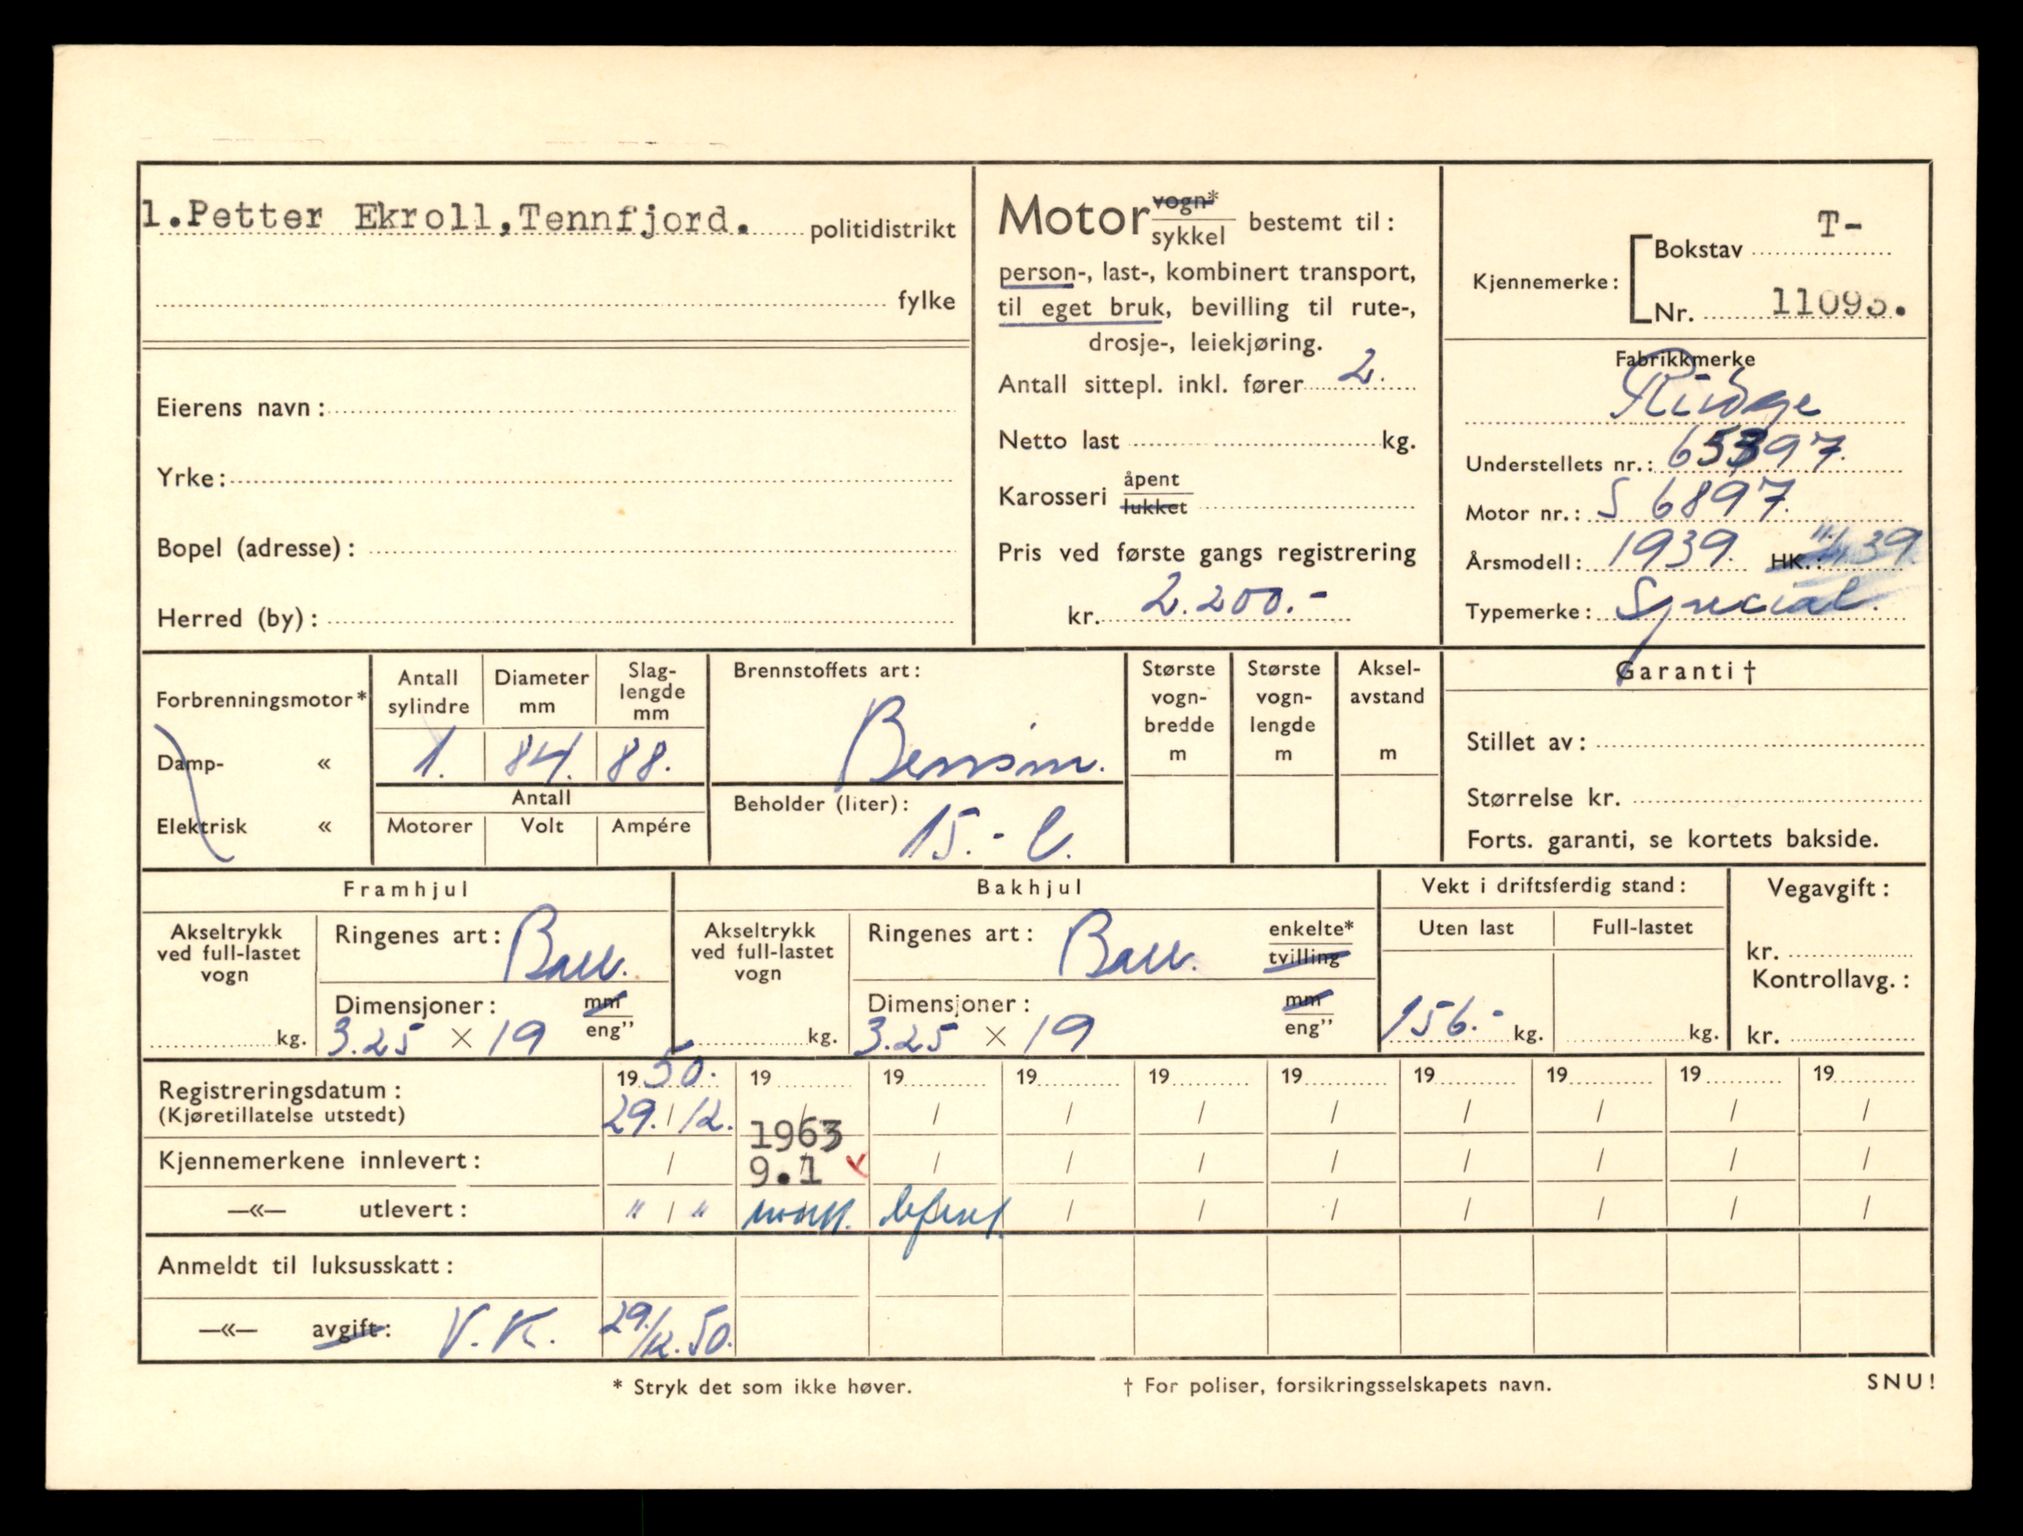 1. Petter Ekroll, Tennfjord. politidistrikt
fylke
Eierens navn:
Yrke:
Bopel (adresse):
Herred (by):
Motor vogn* sykkel bestemt til:
person-, last-, kombinert transport,
til eget bruk, bevilling til rute-,
drosje-, leiekjøring.
Antall sittepl. inkl. fører 2.
Netto last kg.
Karosseri åpent lukket
Pris ved første gangs registrering
kr. 2.200.-
Kjennemerke: Bokstav T-
Nr. 11093.
Fabrikkmerke
Rudge
Understellets nr.: 65397.
Motor nr.: S 6897.
Årsmodell: 1939. HK.: 39
Typemerke: Special.
Forbrenningsmotor*
Damp- «
Elektrisk «
Antall sylindre
1.
Diameter mm
84.
Slag-lengde mm
88.
Antall
Motorer Volt Ampére
Brennstoffets art:
Bensin.
Beholder (liter):
15.- l.
Største vogn-bredde m
Største vogn-lengde m
Aksel-avstand m
Garanti †
Stillet av:
Størrelse kr.
Forts. garanti, se kortets bakside.
Framhjul
Akseltrykk ved full-lastet vogn
kg.
Ringenes art: Ball.
Dimensjoner: mm eng”
3.25 × 19
Bakhjul
Akseltrykk ved full-lastet vogn
kg.
Ringenes art: Ball. enkelte* tvilling
Dimensjoner: mm eng”
3.25 × 19
Vekt i driftsferdig stand:
Uten last Full-lastet
156.- kg. kg.
Vegavgift:
kr.
Kontrollavg.:
kr.
Registreringsdatum: 1950. 19 19 19 19 19 19 19 19 19
(Kjøretillatelse utstedt) 29. / 12. / / / / / / / / /
1963
Kjennemerkene innlevert: / 9.1 v / / / / / / / /
—«— utlevert: " / " / / / / / / /
Anmeldt til luksusskatt:
—«— avgift: V.K. 29./12.50.
* Stryk det som ikke høver.
† For poliser, forsikringsselskapets navn.
SNU!